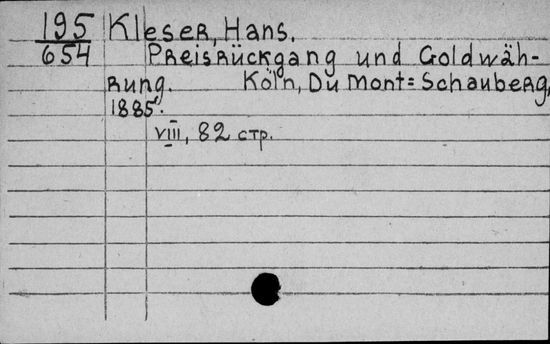 195 Kleser, Hans.
654 Preisrückgang und Goldwäh-
rung. Köln, Du Mont=Schauberg,
1885.
VIII, 82 стр.